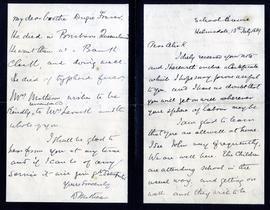 my dear brother Dugie Fraser.
He died in Brisbane Queensland
He was then at a Branch
Clerk and doing well.
He died of typhoid fever.
Mrs Mathieson wishes to be
kindly to Mrs and the
whole of you.
I shall be glad to
hear from you at any time
and if I can be of any
service it will give
Yours Sincerely
School House
Helmsdale, 13th July 189
Dear Alick
I duly received your note
and herewith enclose certificate
which I hope may prove useful
to you and I have no doubt that
you will get on well wherever
your sphere of labour may be
I am glad to learn
that you are all well at home.
I see John very frequently.
We are all well here. The children
are attending school in the
usual way, and getting on
well and they wish to be